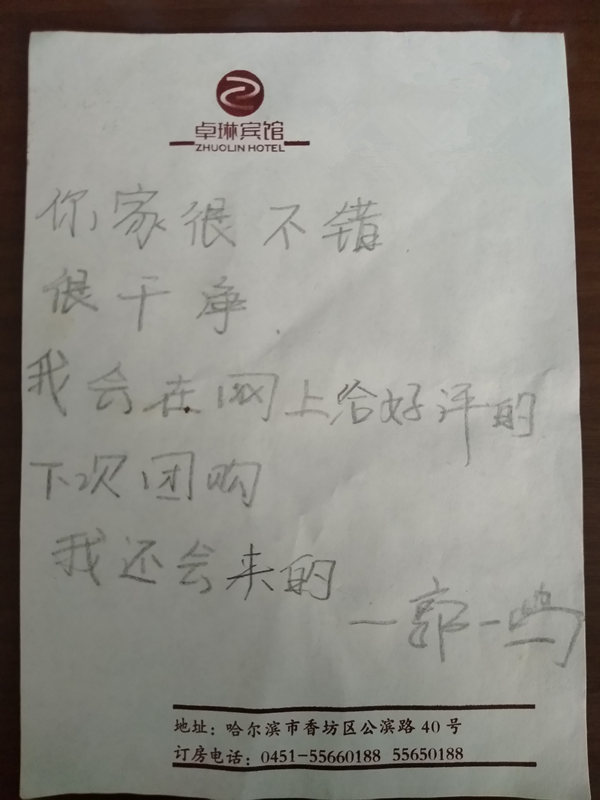 卓琳宾馆
ZHUOLIN HOTEL
你家很不错
很干净.
我会在网上给好评的
下次团购
我还会来的
一郭一鸣
地址: 哈尔滨市香坊区公滨路 40 号
订房电话: 0451-55660188 55650188